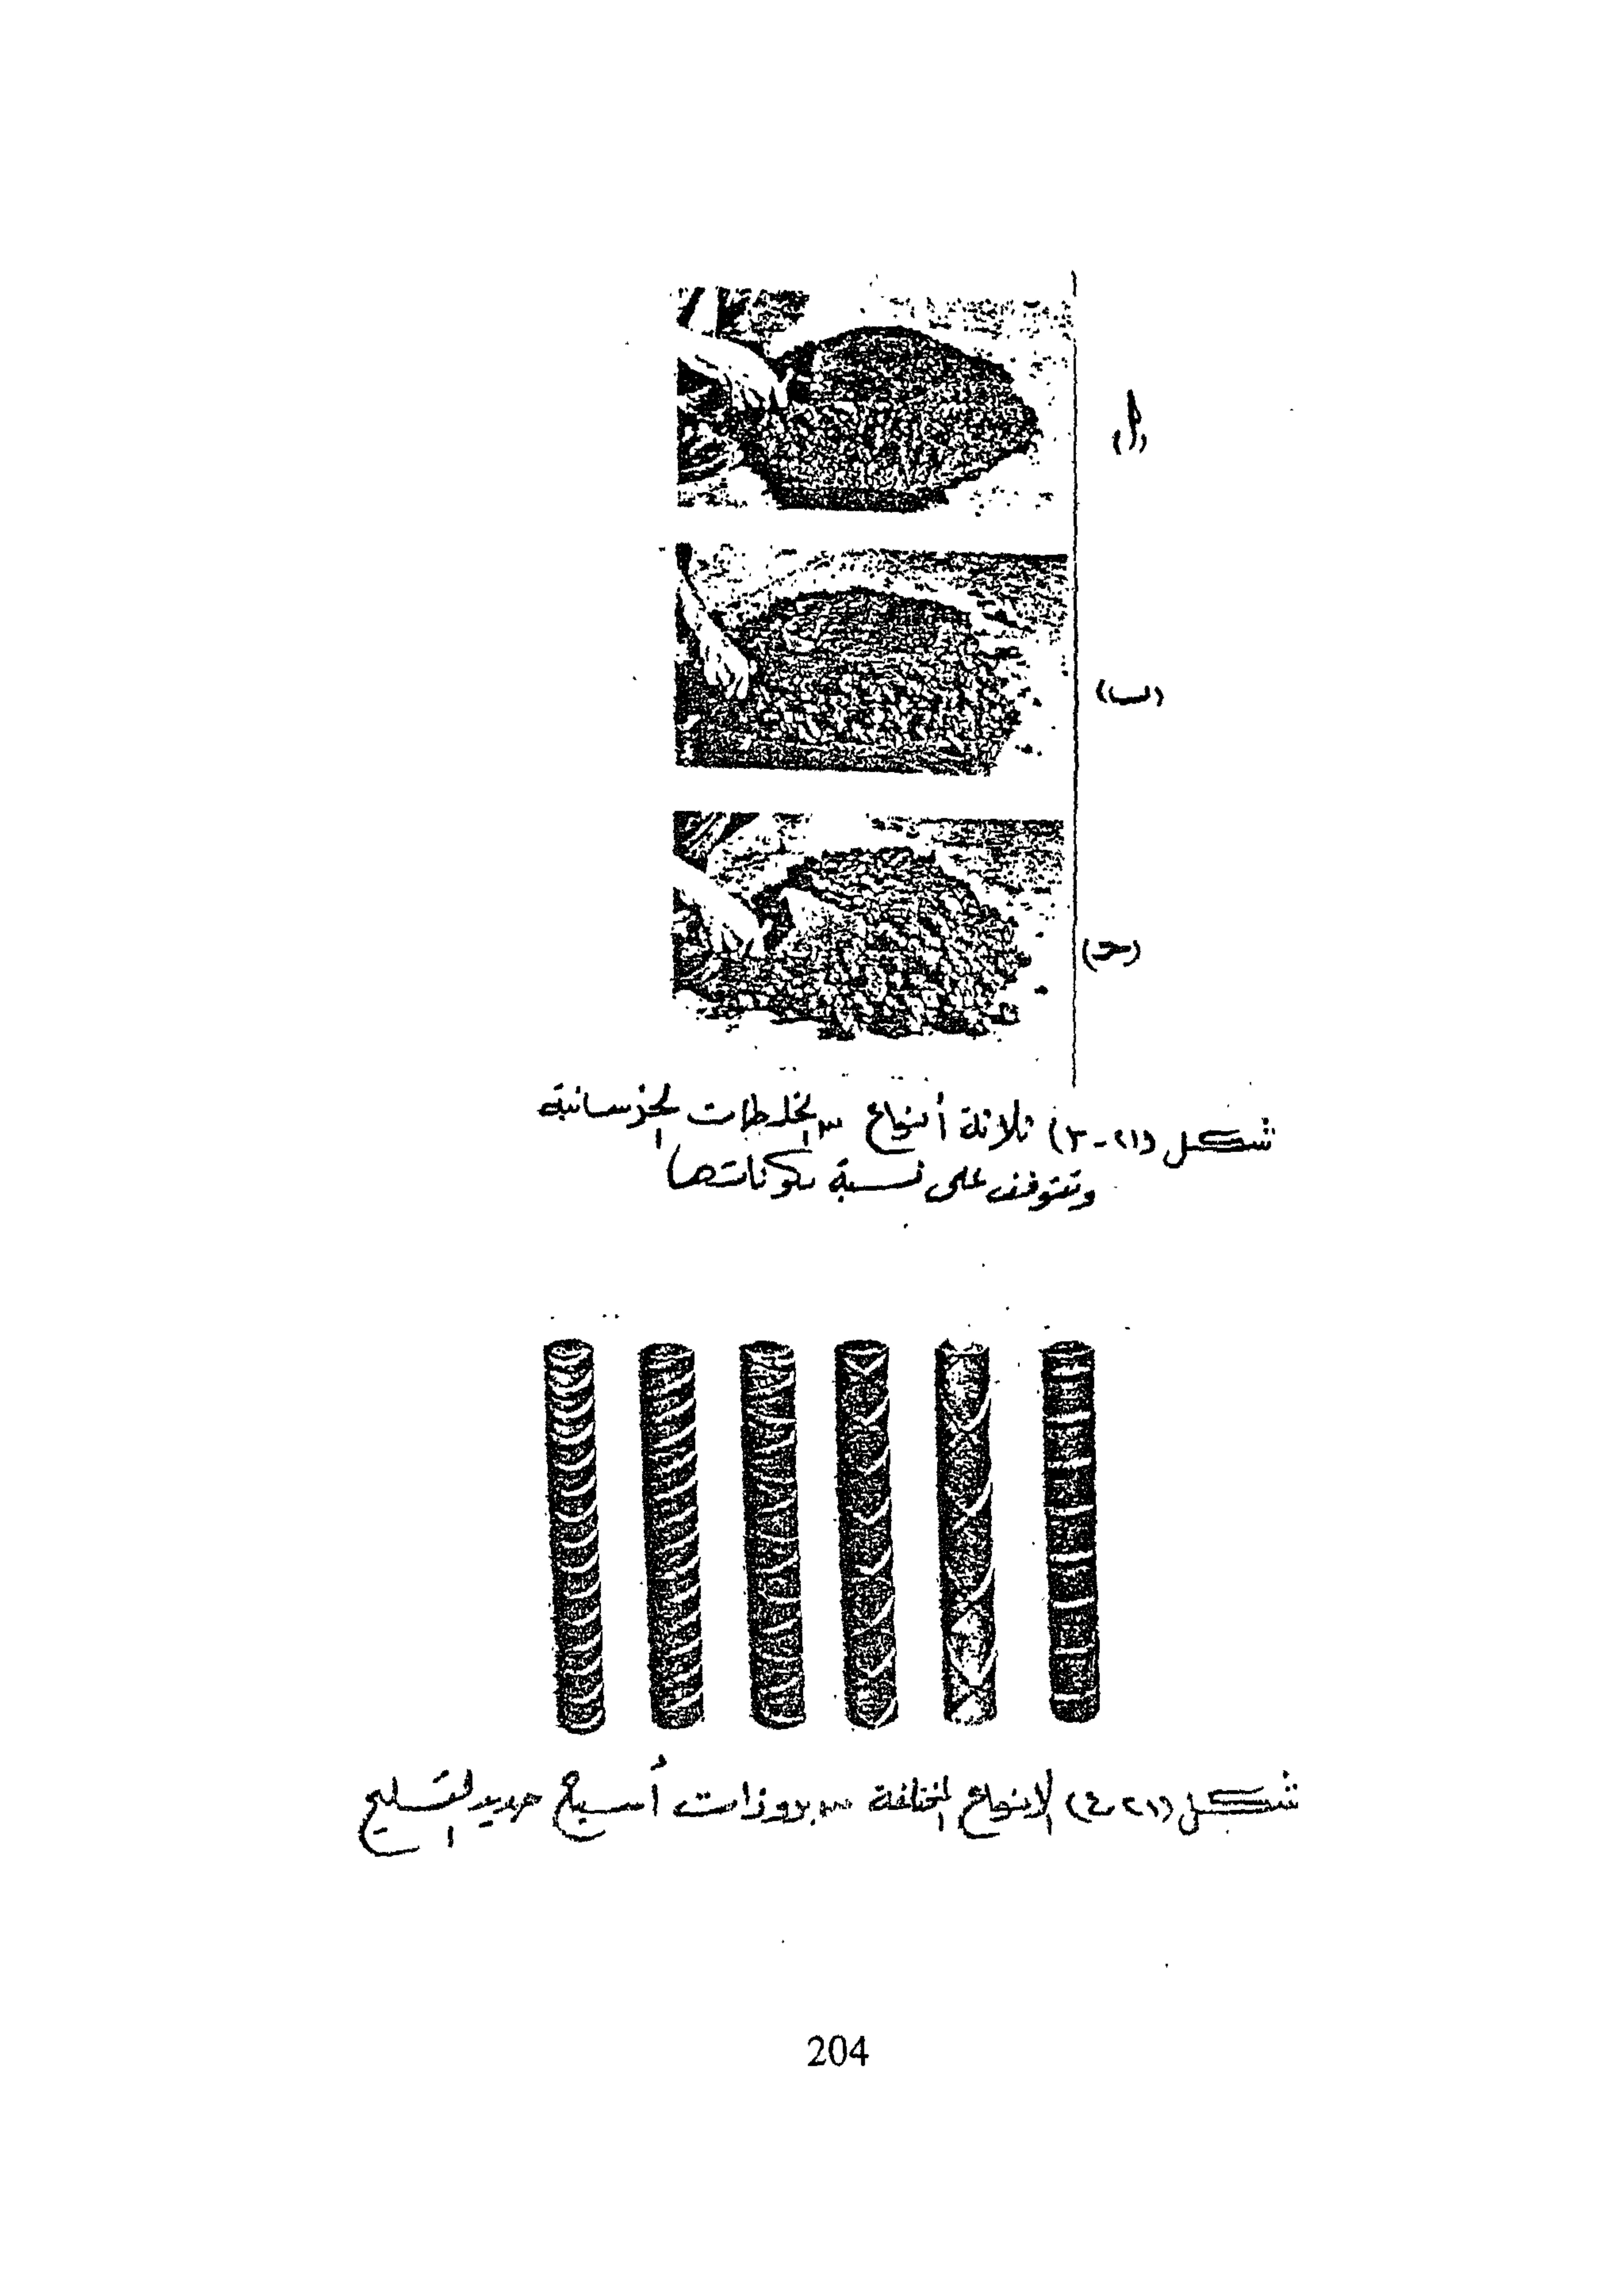 (أ)
(ب)
(حـ)
شكل (٢١-٣) ثلاثة أنواع من الخلطات الخرسانية
وتتوقف على نسبة مكوناتها
شكل (٢١-٤) الأنواع المختلفة من بروزات أسياخ حديد التسليح
204